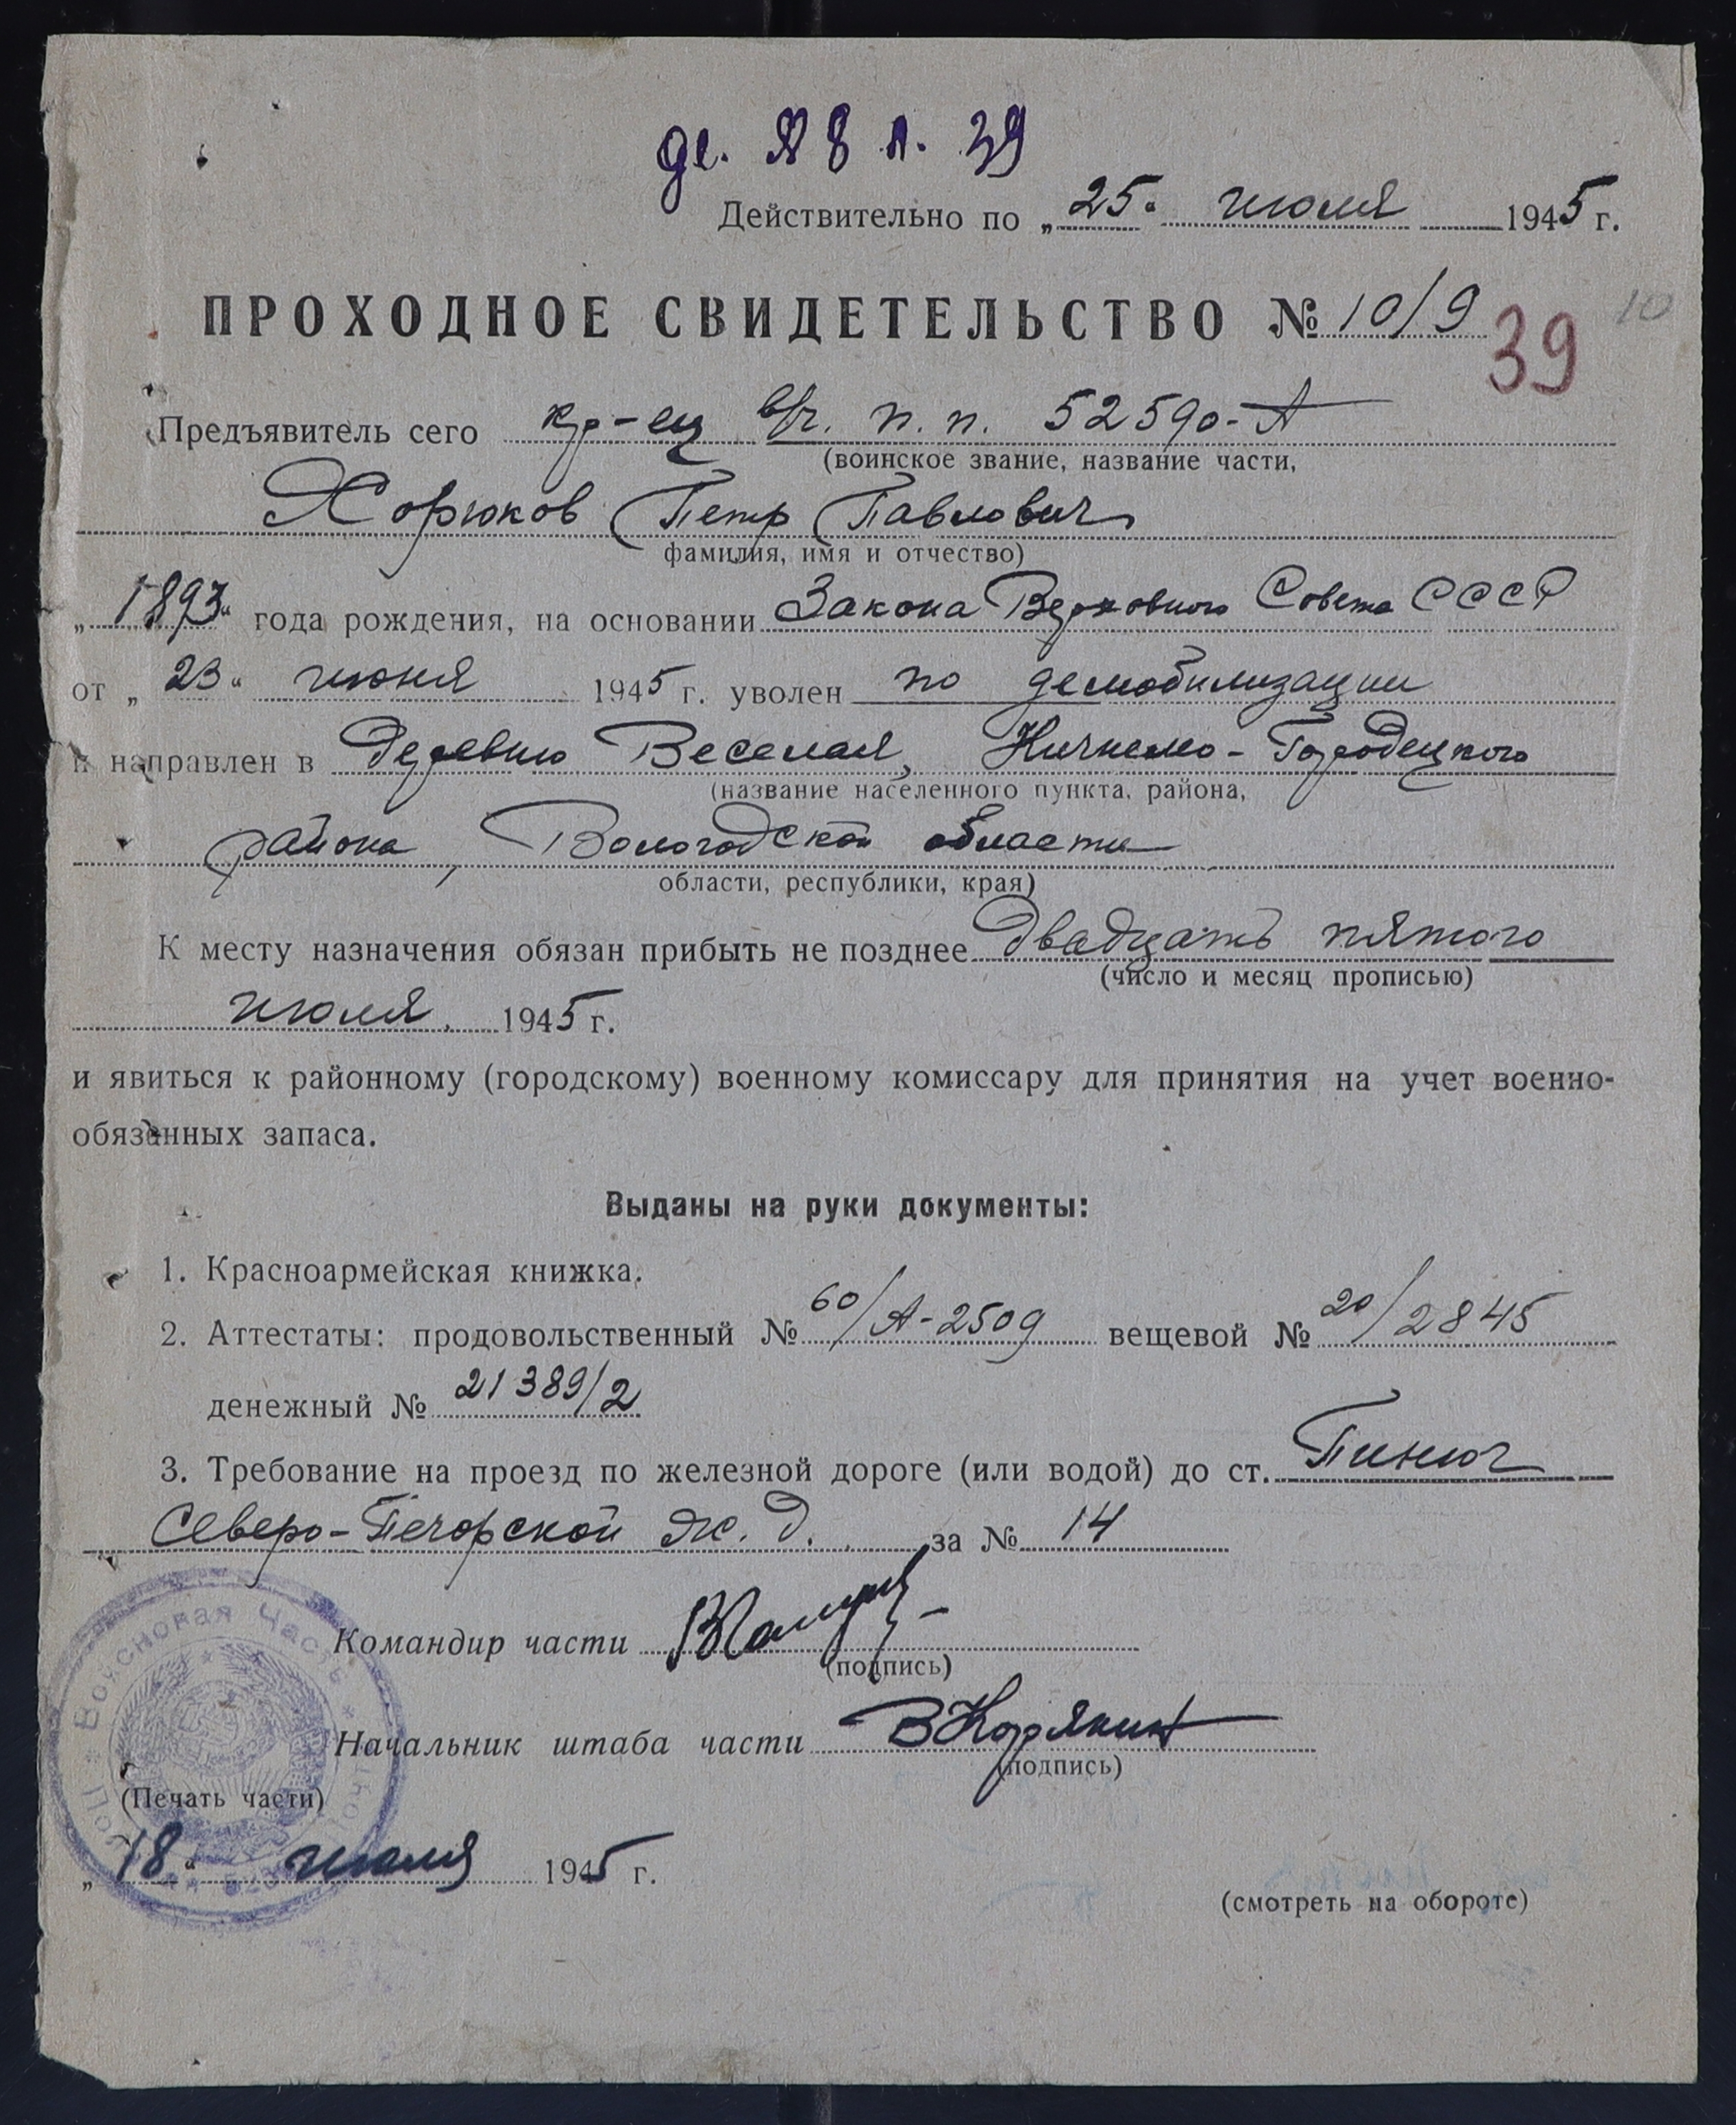 де. № 8 л. 39
Действительно по „25“ июля 1945 г.
ПРОХОДНОЕ СВИДЕТЕЛЬСТВО № 10/9
39
10
Предъявитель сего кр-ец в/ч. п. п. 52590-А
(воинское звание, название части,
Хорюков Петр Павлович
фамилия, имя и отчество)
„1893“ года рождения, на основании Закона Верховного Совета СССР
от „23“ июня 1945 г. уволен по демобилизации
и направлен в деревню Веселая, Кичмено-Городецкого
(название населенного пункта, района,
района, Вологодской области
области, республики, края)
К месту назначения обязан прибыть не позднее двадцать пятого
(число и месяц прописью)
июля 1945 г.
и явиться к районному (городскому) военному комиссару для принятия на учет военно-
обязанных запаса.
Выданы на руки документы:
1. Красноармейская книжка.
2. Аттестаты: продовольственный № 60/А-2509 вещевой № 20/2845
денежный № 21389/2
3. Требование на проезд по железной дороге (или водой) до ст. Пинюг
Северо-Печорской ж. д. за № 14
Войсковая Часть
Командир части
(подпись)
Начальник штаба части ВКорякин
(подпись)
(Печать части)
„18“ июля 1945 г.
(смотреть на обороте)